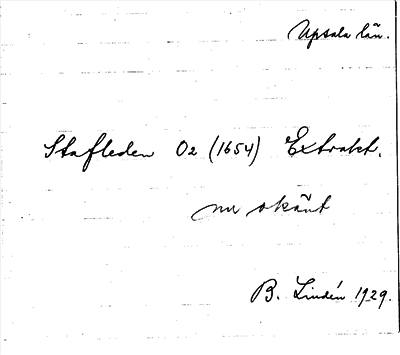 Upsala län.
Stafleden O2 (1654) Extrakt.
nu okänt
B. Lindén 1929.